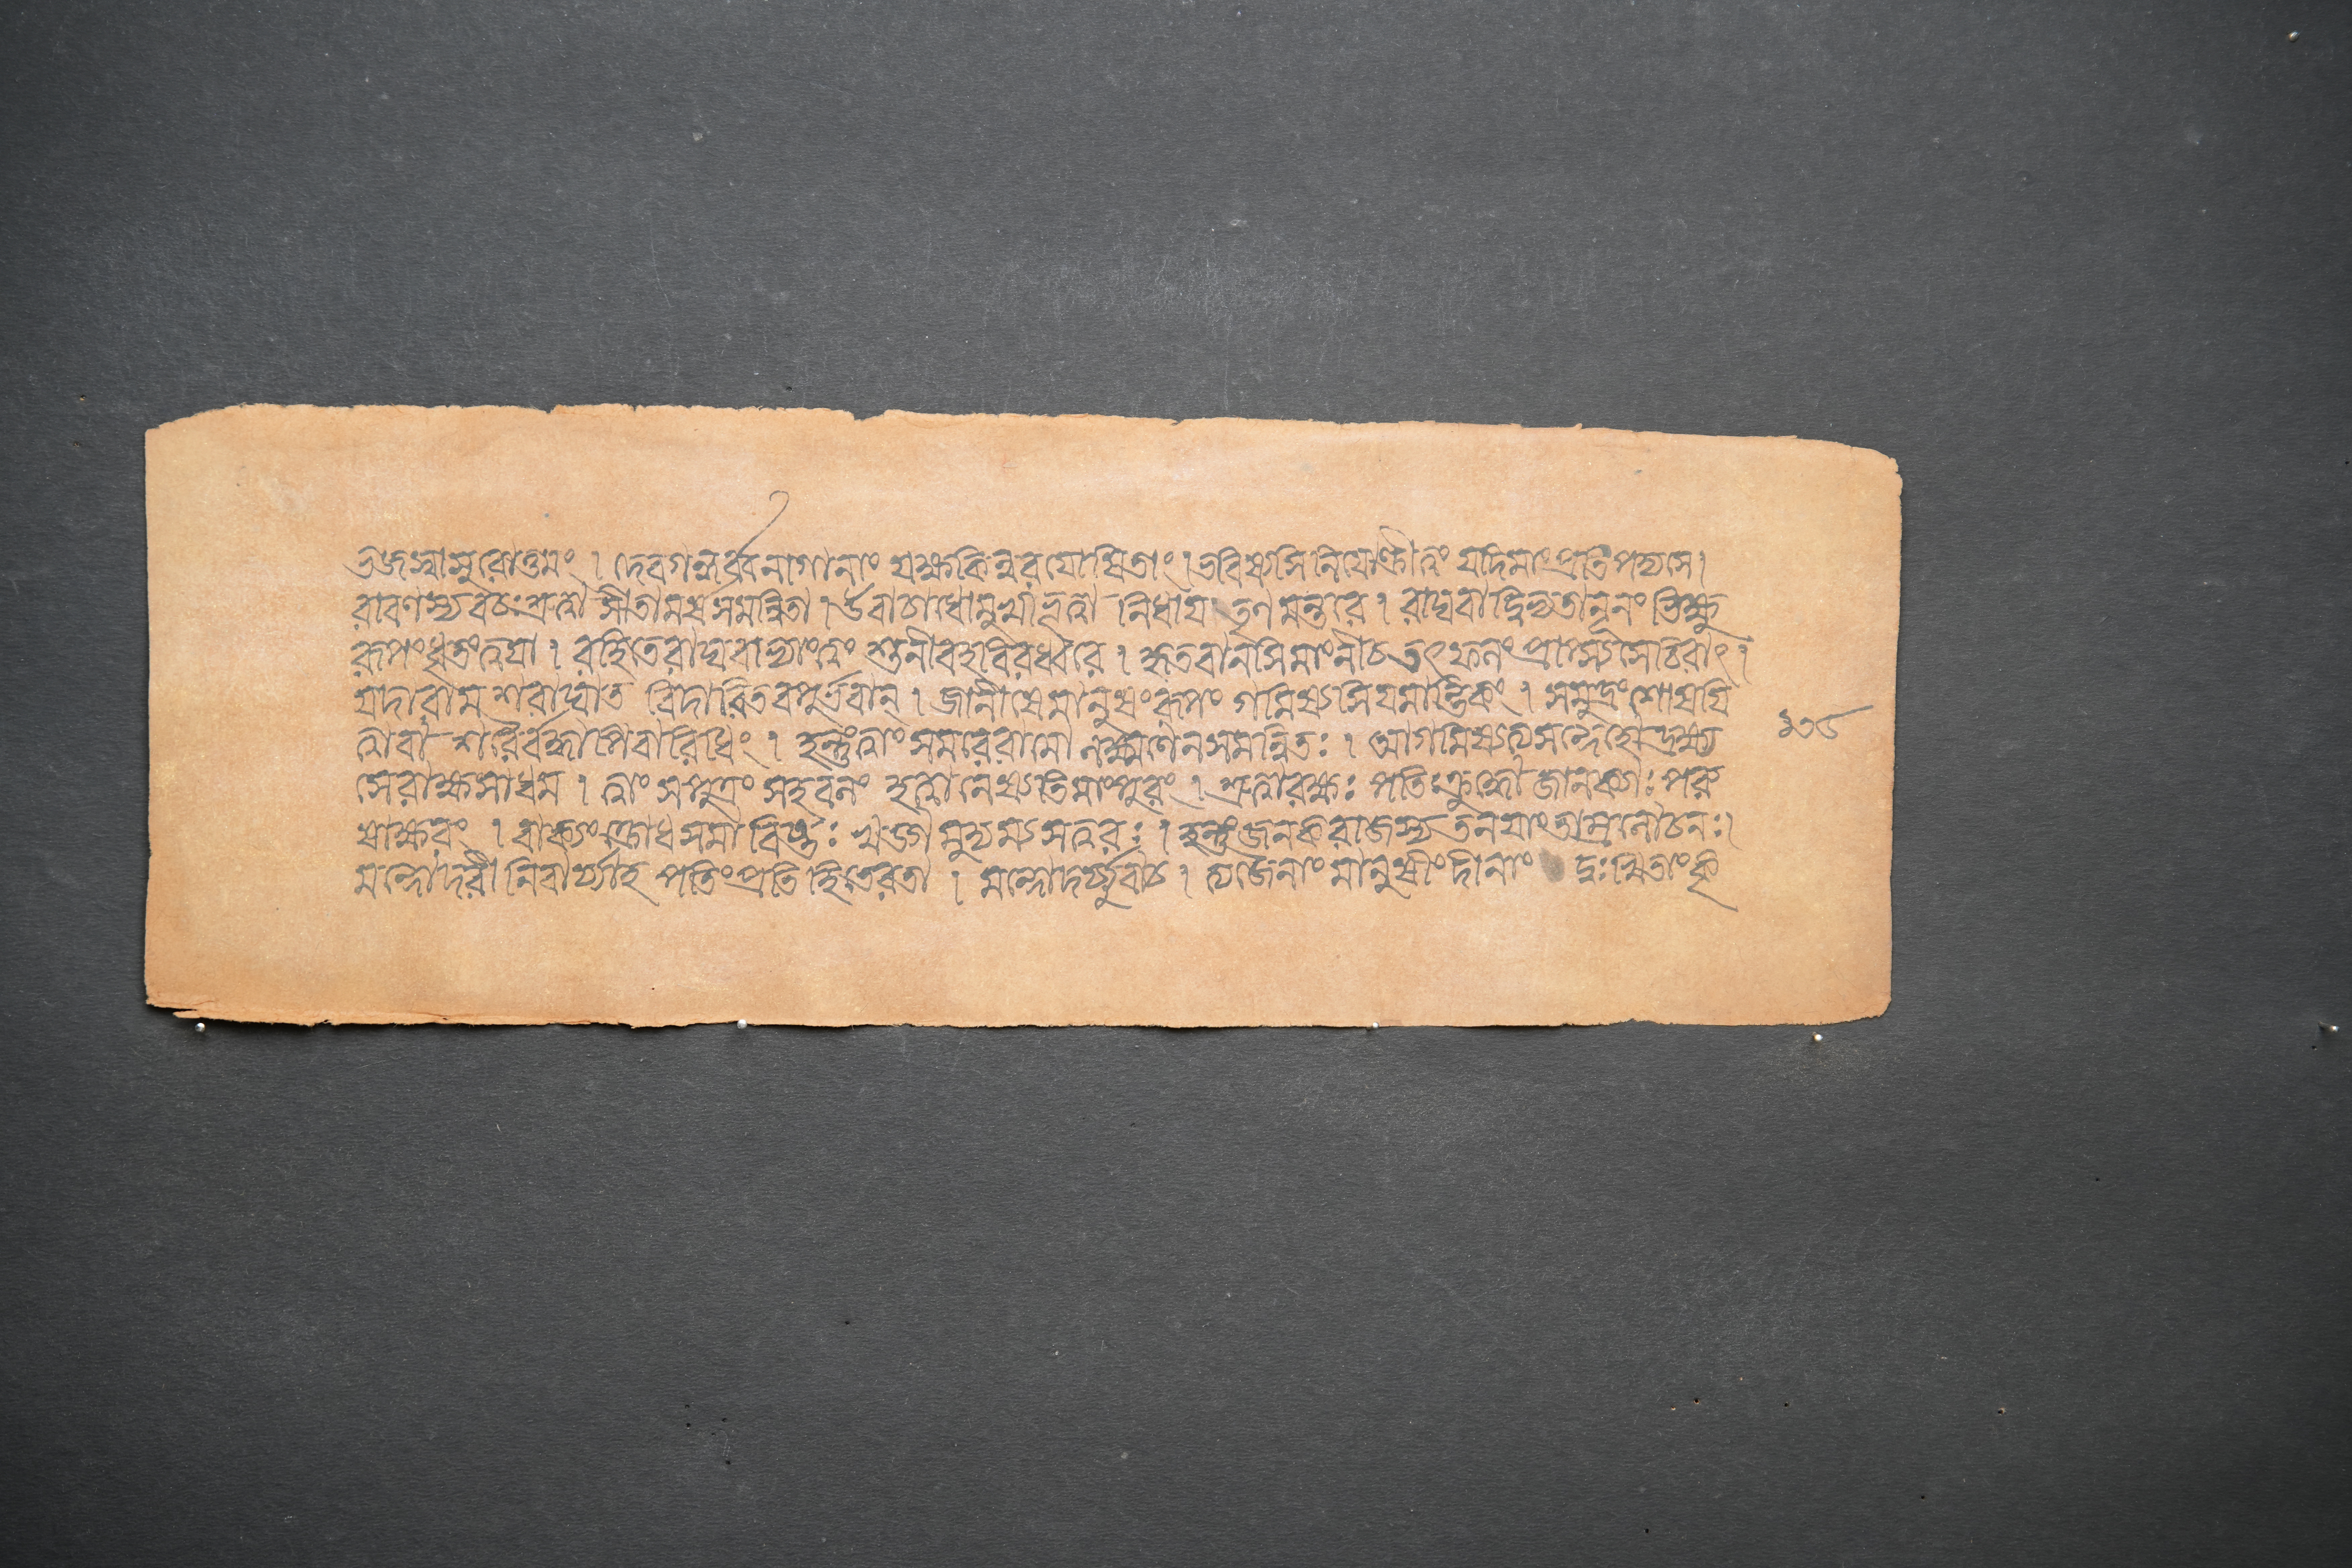 ভজস্বাসুরোত্তমং । দেবগন্ধর্ব্বনাগানাং যক্ষকিন্নরযোষিতাং । ভবিষ্যসি নিযোক্ত্রীত্বং যদিমাংপ্রতিপদ্যসে ।
রাবণস্যবচঃশ্রুত্বা সীতামর্ষসমন্বিতা । উবাচাধোমুখীভূত্বা নিধায তৃণমন্তরে । রাঘবাদ্বিভ্যতানূনং ভিক্ষু
রূপংধৃতংত্বযা । রহিতেরাঘবাভ্যাংত্বং শুনীবহবিরধ্বরে । হৃতবানসিমাংনীচতৎফলংপ্রাপ্স্যসেচিরাৎ ।
যদারামশরাঘাত বিদারিতবপুর্ভবান্ । জ্ঞানীষেমানুষংরূপং গমিষ্যসিযমান্তিকং । সমুদ্রংশোষযি
ত্বাবা শরৈর্বদ্ধাপিবারিধিং । হন্তুংত্বাং সমরেরামো লক্ষ্মণেনসমন্বিতঃ । আগমিষ্যত্যসন্দেহোদ্রক্ষ্য
সেরাক্ষসাধম । ত্বাং সপুত্রং সহবলং হত্বানেষ্যতিমাংপুরং । শ্রুত্বারক্ষঃ পতিঃক্রুদ্ধো জানক্যাঃ পরু
ষাক্ষরং । বাক্যংক্রোধসমাবিষ্টঃ খড়্গমুদ্যম্যসত্বরঃ । হন্তুংজনকরাজস্যতনযাংতাম্রলোচনঃ।
মন্দোদরী নিবার্য্যাহ পতিংপ্রতিহিতেরতা । মন্দোদর্য্যুবাচ । ত্যজৈনাং মানুষীংদীনাং দুঃখিতাংকৃ